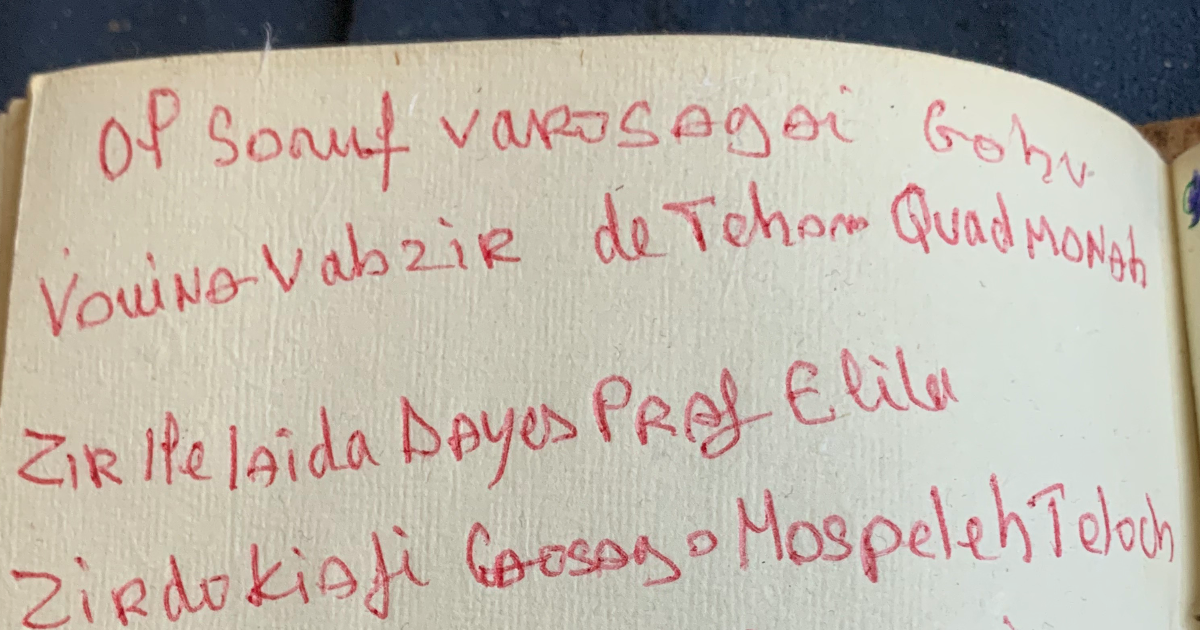 Of Sonuf vaRoSAgAi Gohu
VouiNA Vabzir de Tehom QuadMONAh
Zir IlelAida DAyes PRAf Elila
ZiRdo KiAfi CAOSAgo Mospeleh Teloch